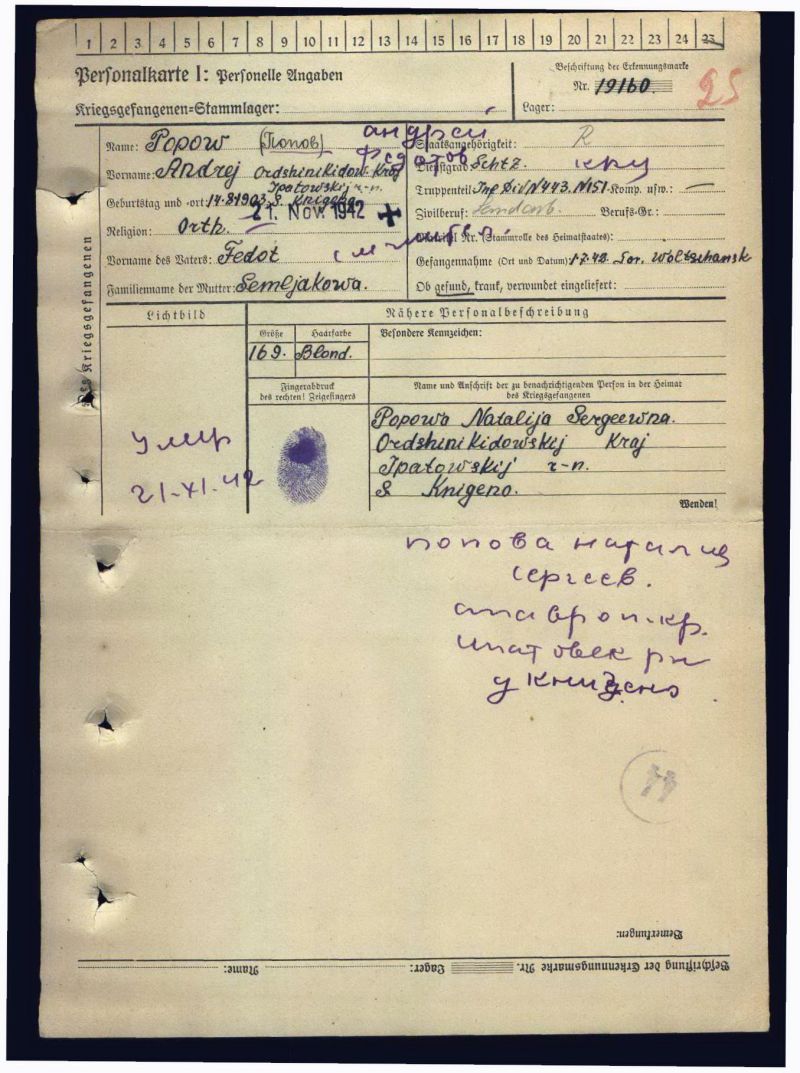 1 2 3 4 5 6 7 8 9 10 11 12 13 14 15 16 17 18 19 20 21 22 23 24 25
Personalkarte I: Personelle Angaben
Kriegsgefangenen-Stammlager:
Beschriftung der Erkennungsmarke
Nr. 19160
Lager:
25
Name: Popow (Попов)
андрей
федотов
Vorname: Andrej
Ordshinikidow. Kraj
Ipatowskij r-n.
Geburtstag und -ort: 14.8.1903, S. Knigeno
21. Nov. 1942
Religion: Orth.
Vorname des Vaters: Fedot
Familienname der Mutter: Semljakowa.
Staatsangehörigkeit: R
Dienstgrad: Schtz.
Truppenteil: Div. N443. N151 Komp. usw.: —
Zivilberuf: Landarb. Berufs-Gr.:
Matrikel Nr. (Stammrolle des Heimatstaates):
Gefangennahme (Ort und Datum): 1.7.42. Gor. Woltschansk
Ob gesund, krank, verwundet eingeliefert:
des Kriegsgefangenen
Lichtbild
Nähere Personalbeschreibung
Größe
Haarfarbe
Besondere Kennzeichen:
169.
Blond.
Fingerabdruck
des rechten! Zeigefingers
Name und Anschrift der zu benachrichtigenden Person in der Heimat
des Kriegsgefangenen
умир
21-XI-42
Popowa Natalija Sergeewna.
Ordshinikidowskij Kraj
Ipatowskij r-n.
S Knigeno.
Wenden!
попова наталия
сергеев.
ставроп.кр.
ипатовск рн
44
Bemerkungen:
Beschriftung der Erkennungsmarke Nr. Lager: Name: